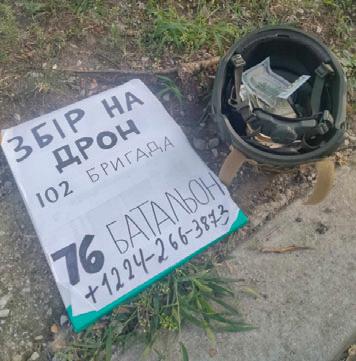 ЗБІР НА
ДРОН
102 БРИГАДА
76 БАТАЛЬОН
+1224-266-3873